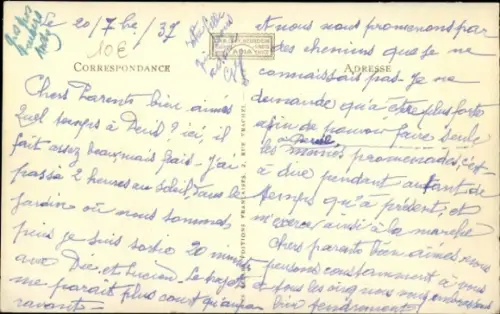 Le 20/7bre/37
10€
CORRESPONDANCE
ADRESSE
Chers Parents bien aimés
Quel temps à Deuil? ici, il
fait assez beau mais frais - j'ai
passé 2 heures au soleil, dans le
jardin où nous sommes
puis je suis sortie 20 minutes
avec Dée, et Lucien. Le trajet
me paraît plus court qu'aupa
ravant -
et nous nous promenons par
des chemins que je ne
connaissais pas - Je ne
demande qu'à être plus forte
afin de pouvoir faire seule
les mêmes promenades, c'est-
à dire pendant autant de
temps qu'à présent, et
m'exercer ainsi à la marche
Chers parents bien aimés, nous
pensons constamment à vous
et tous les cinq nous vous embrassons
bien tendrement
EDITIONS FRANÇAISES